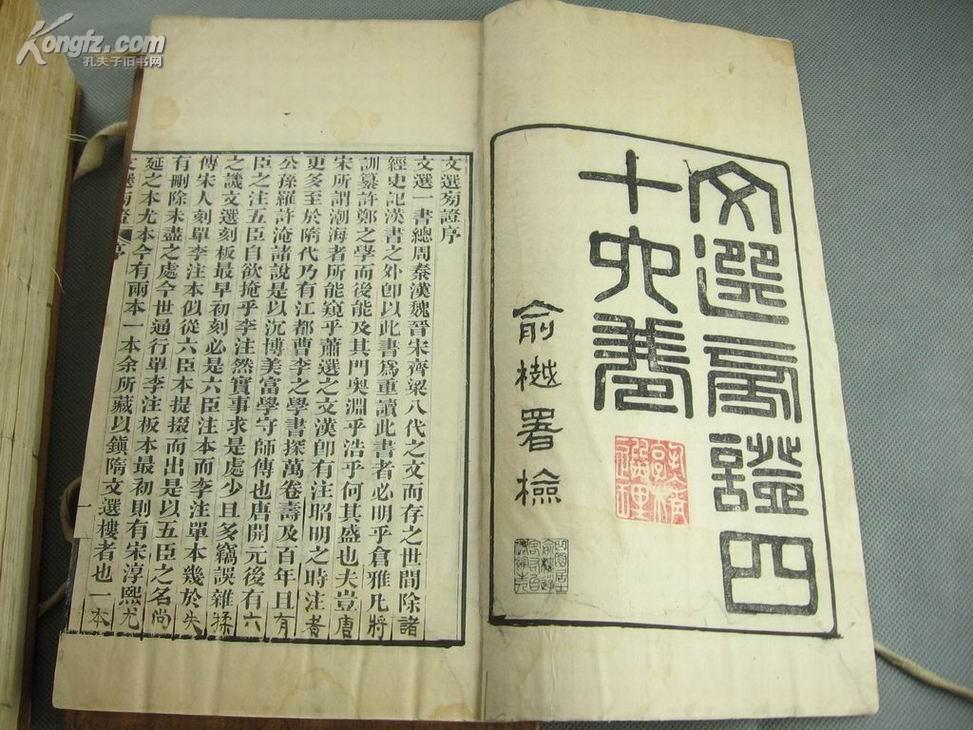 Kongfz.com
孔夫子旧书网
文選旁證四
十六卷
俞樾署檢
文選旁證序
文選一書總周秦漢魏晉宋齊梁八代之文而存之世間除諸
經史記漢書之外卽以此書爲重讀此書者必明乎倉雅凡將
訓纂許鄭之學而後能及其門奧淵乎浩乎何其盛也夫豈唐
宋所謂潮海者所能窺乎蕭選之文漢卽有注昭明之時注者
更多至於隋代乃有江都曹李之學書探萬卷壽及百年且有
公孫羅許淹諸說是以沉博美富學守師傳也唐開元後有六
臣之注五臣自欲掩乎李注然實事求是處少且多竊誤雜揉
之譏文選刻板最早初刻必是六臣注本而李注單本幾於失
傳宋人刻單李注本似從六臣本提掇而出是以五臣之名尚
有刪除未盡之處今世通行單李注板本最初則有宋淳熙尤
延之本尤本今有兩本一本余所藏以鎭隋文選樓者也一本
文選旁證 序 一